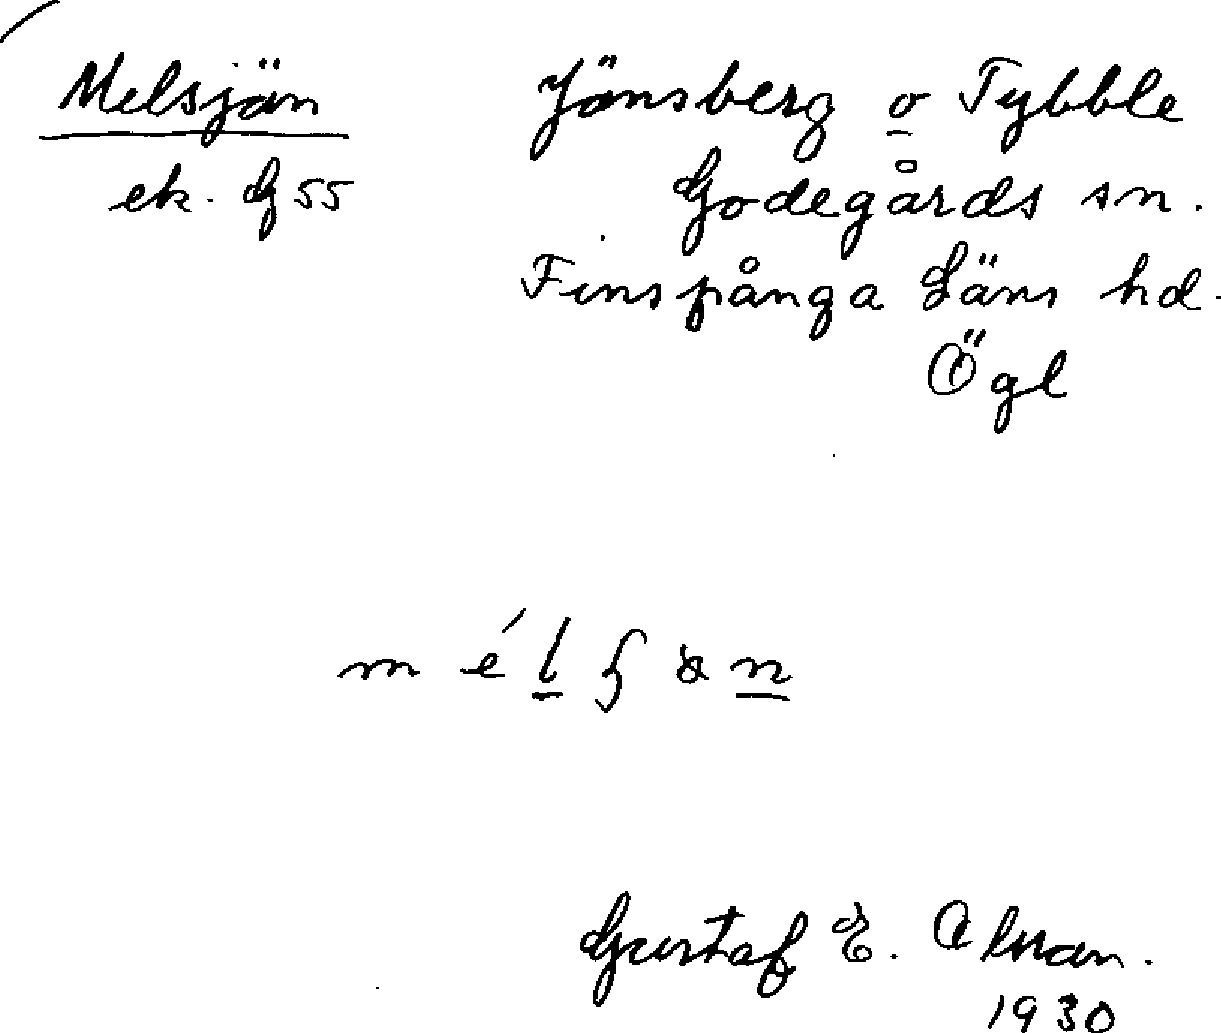 Melsjän
ek. G 55
Jänsberg o Tybble
Godegårds sn.
Finspånga Läns hd.
Ögl
Gustaf E.
1930